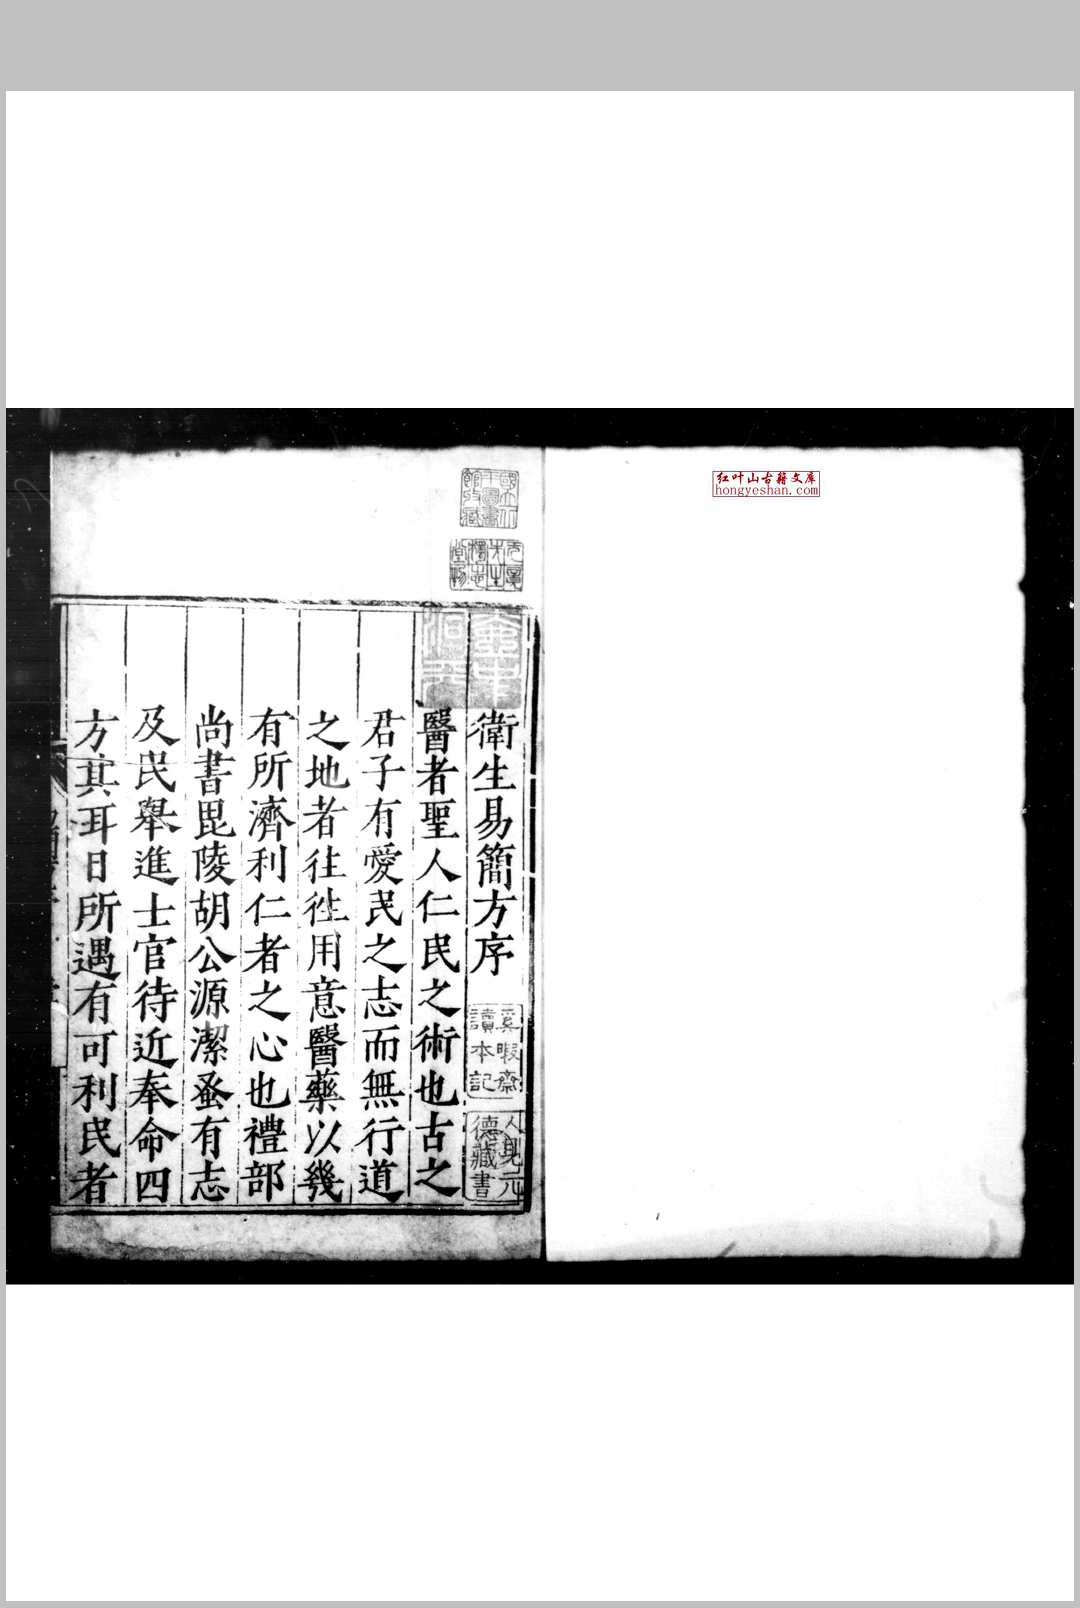 红叶山古籍文库
hongyeshan.com
衛生易簡方序
醫者聖人仁民之術也古之
君子有愛民之志而無行道
之地者往徃用意醫藥以幾
有所濟利仁者之心也禮部
尚書毘陵胡公源潔蚤有志
及民舉進士官待近奉命四
方其耳日所遇有可利民者
奚暇齋
讀本記
人見元
德藏書